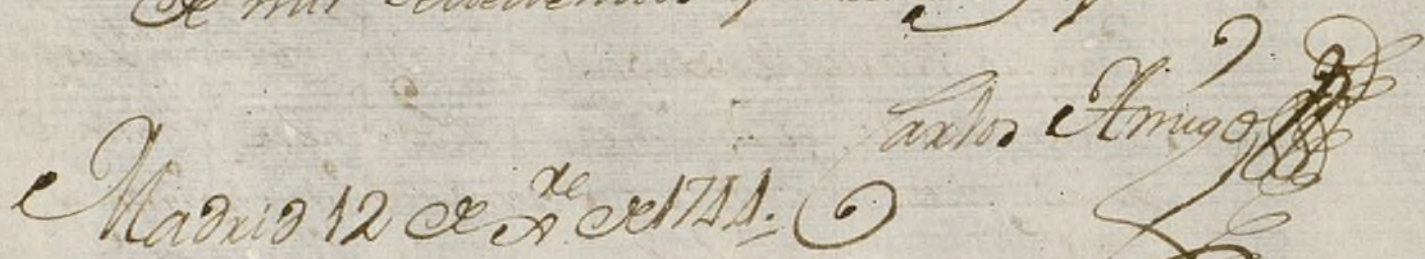 de mis
Carlos Amigo
Madrid 12 de Xre de 1744.